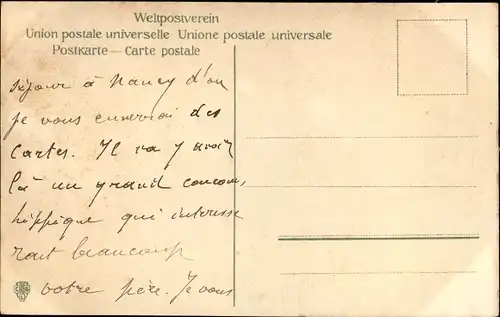 Weltpostverein
Union postale universelle Unione postale universale
Postkarte — Carte postale
séjour à Nancy d'ou
je vous enverrai des
cartes. Il va y avoir
là un grand concours
hippique qui interesse
rait beaucoup
votre père. Je vous